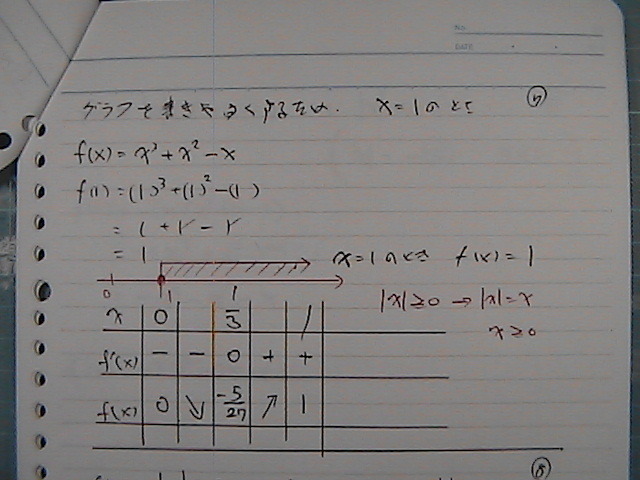 No.
DATE
グラフを書きやすくするため. x=1のとき ⑦
f(x) = x³ + x² - x
f(1) = (1)³ + (1)² - (1)
= 1 + 1 - 1
= 1 x=1のとき f(x) = 1
0 1
|x| ≥ 0 → |x| = x
x ≥ 0
x 0 1/3 1
f'(x) - - 0 + +
f(x) 0 ↘ -5/27 ↗ 1
⑧